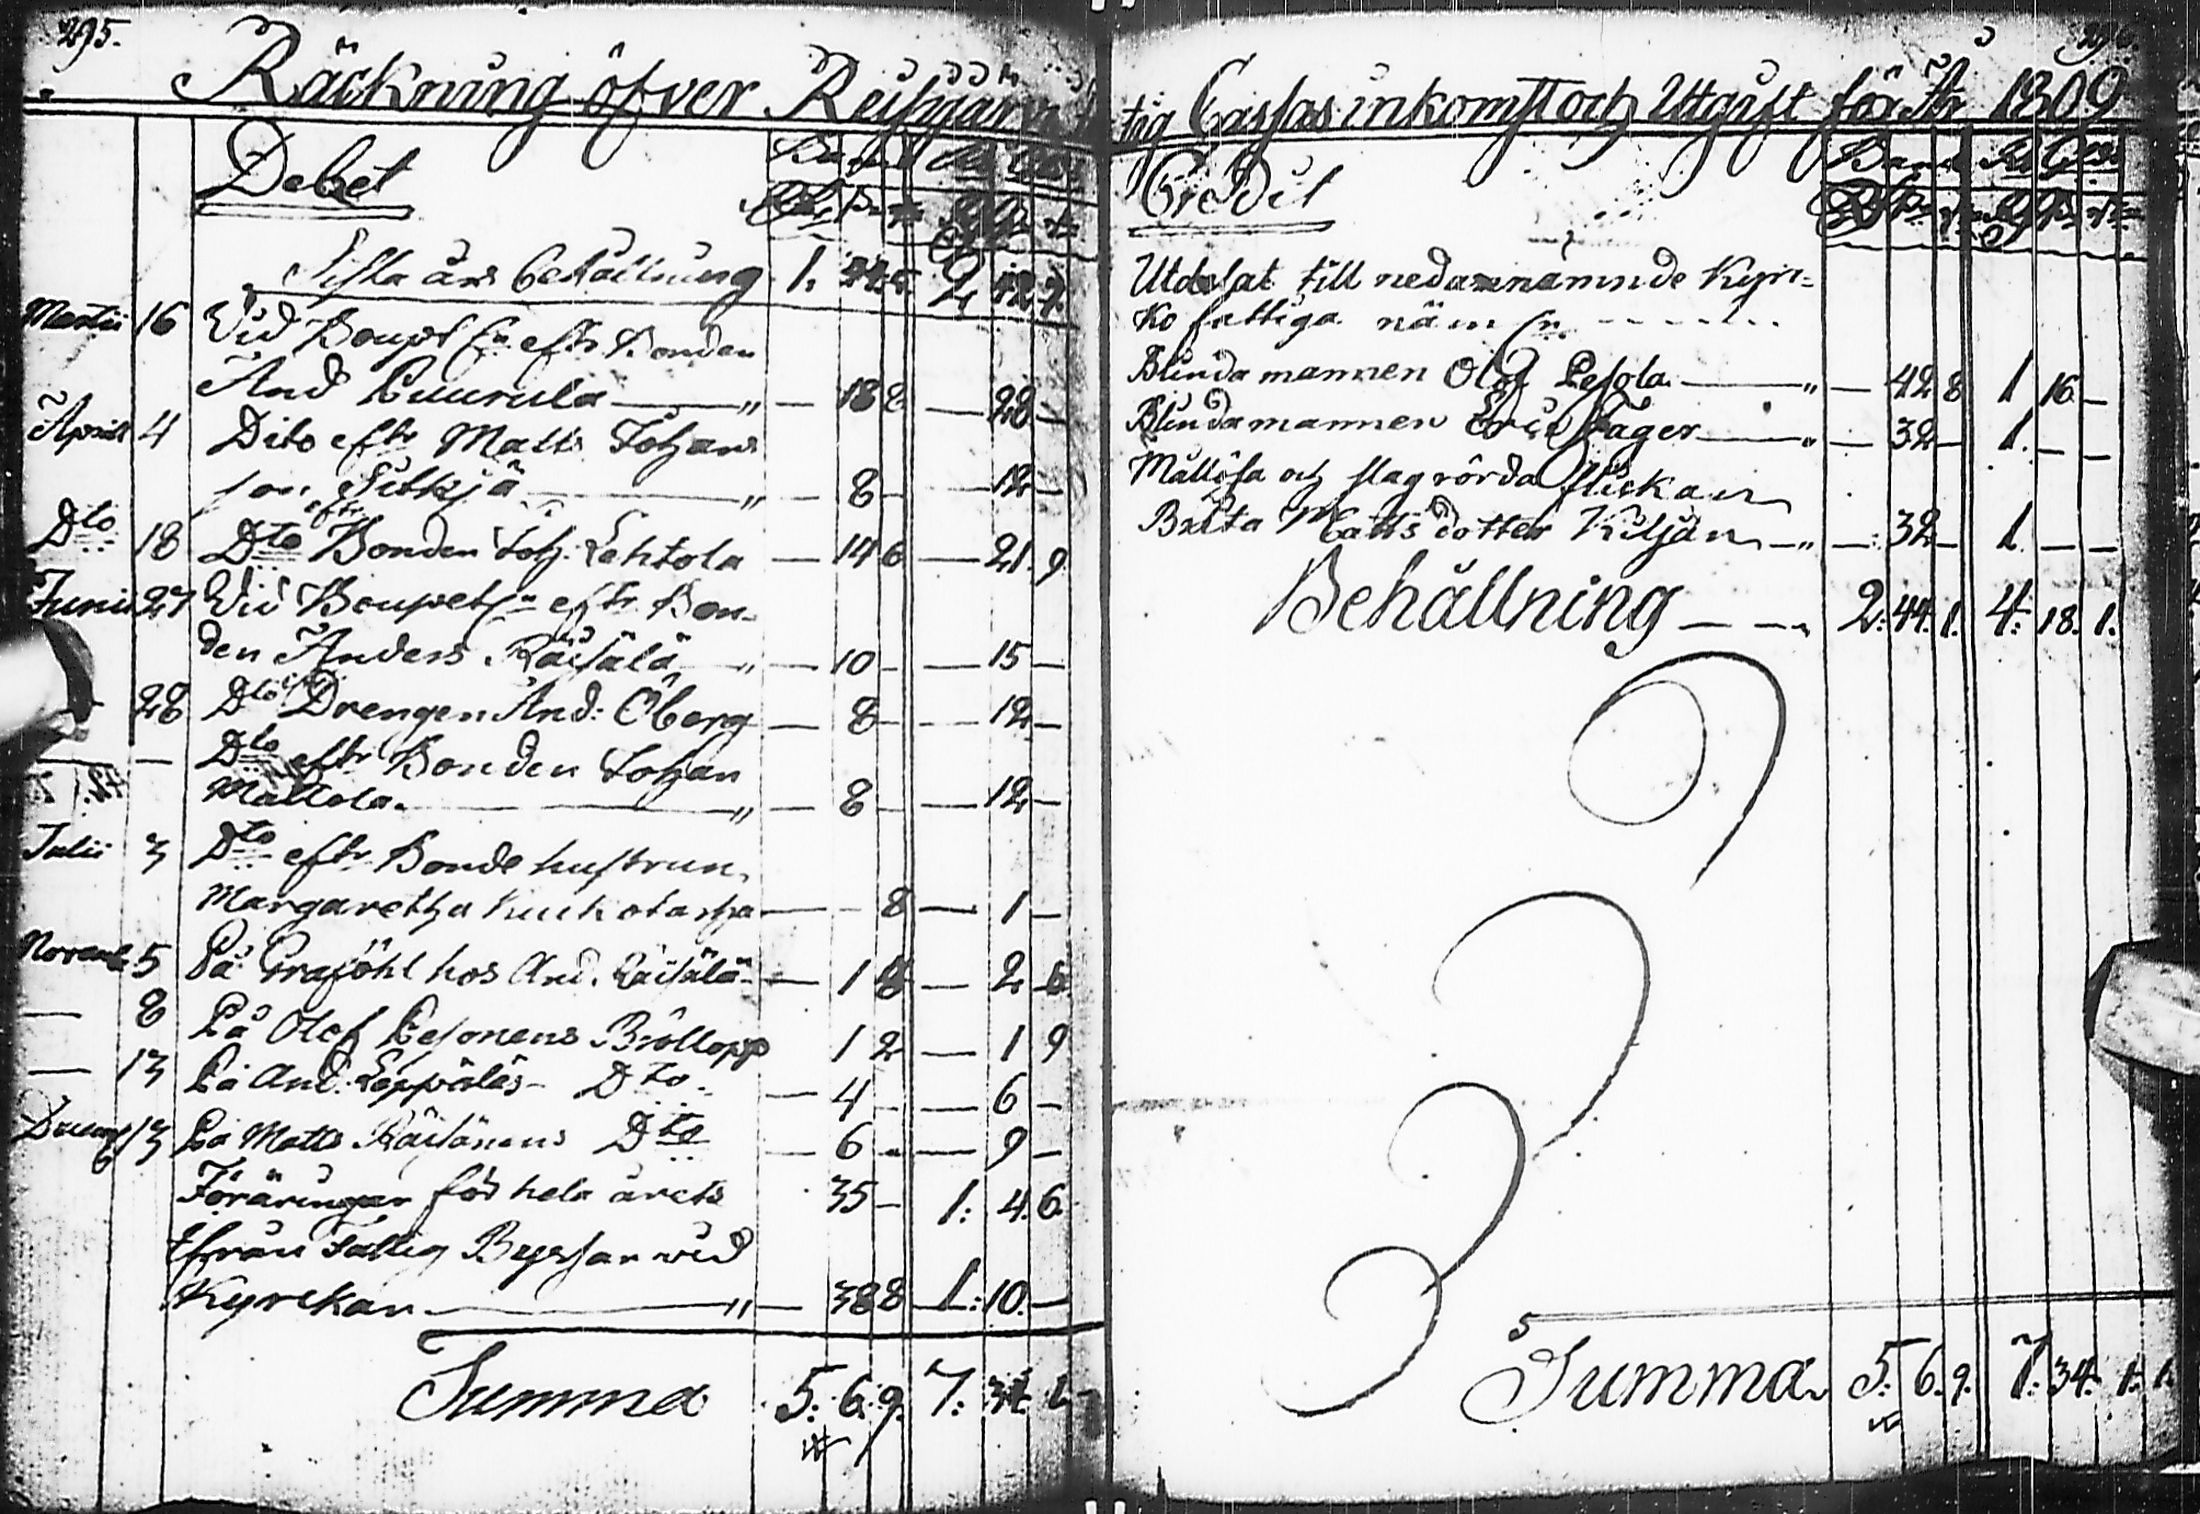 295.
Räckning öfver
Debet
Sista års behållning 1. 44. 5. 2. 42. 7.
Martii 16 Vid Boupt:n eftr Bonden
And Puurula — " — 18 8 — 28 —
April 4 Dito eftr Matts Johans
son Sitkjä — " — 8 — — 12 —
Dto 18 Dto eftr Bonden Joh. Lehtola — 14 6 — 21. 9
Junii 27 Vid Boupet:n eftr Bon-
den Anders Räisälä " — 10 — — 15 —
— 28 Dto eftr Drengen And: Öberg — 8 — — 12 —
— — Dto eftr Bonden Johan
Mattola — " — 8 — — 12 —
Julii 3 Dto eftr Bonde hustrun
Margaretha — — 8 — 1 —
Novemb 5 På Graföhl hos And. Räisälä — 1 8 — 2 6
— 8 På Olof Pesonens Bröllopp 1 2 — 1 9
— 13 På And. Leppäläs Dto — 4 — — 6 —
Decemb 13 På Matts Räisänens Dto — 6 — — 9 —
Föräringar för hela årets 35 — 1: 4. 6.
Ifrån Fattig Byssan vid
Kyrckan — " — 38 8 1: 10. —
Summa 5. 6. 9. 7: 34. 1.
tig Cassas inkomst och Utgift för År 1809
Credit
Utdelat till nedannämnde Kyrc-
ko fattiga näml:n
Blinda mannen Olof Pesola — " — 42 8 1 16 —
Blinda mannen Eric Fager — " — 32 — 1. — —
Mållösa och slagrörda flickan
Brita Mattsdotter Kiljän — " — 32 — 1. — —
Behållning — — " 2. 44. 1. 4. 18. 1.
Summa 5. 6. 9. 7. 34. 1.